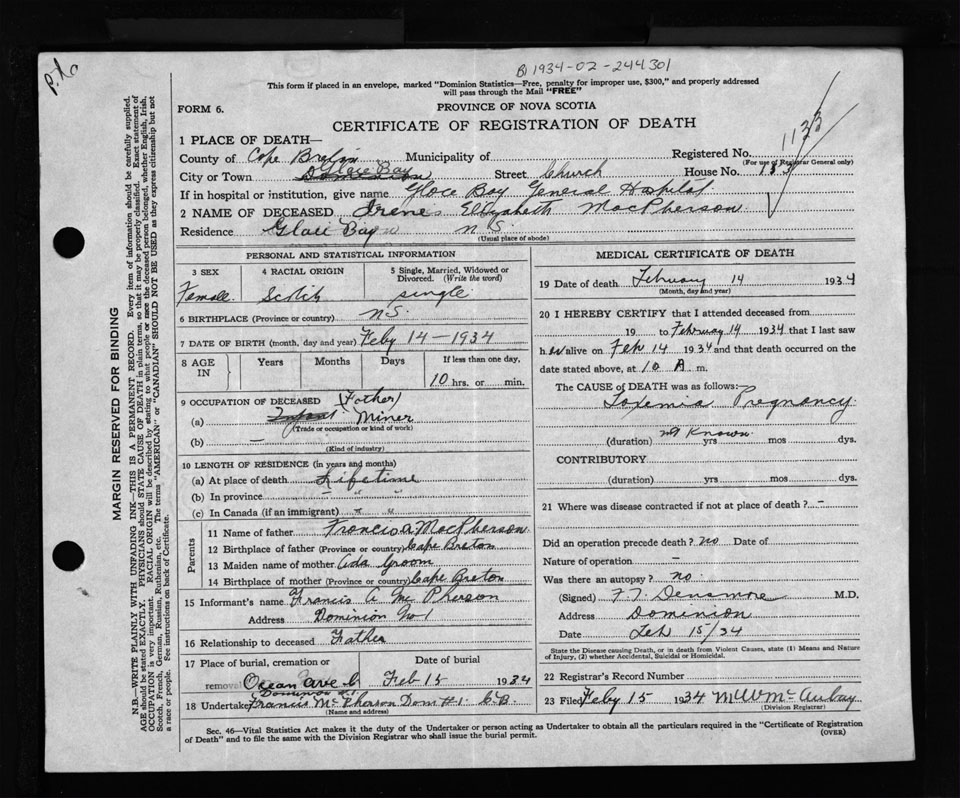 B 1934-02-244301
This form if placed in an envelope, marked "Dominion Statistics—Free, penalty for improper use, $300," and properly addressed
will pass through the Mail "FREE"
FORM 6.
PROVINCE OF NOVA SCOTIA
1133
CERTIFICATE OF REGISTRATION OF DEATH
1 PLACE OF DEATH—
County of Cape Breton Municipality of Registered No.
(For use of Registrar General only)
City or Town Glace Bay Street Church House No. 183
If in hospital or institution, give name Glace Bay General Hospital
2 NAME OF DECEASED Irene Elizabeth MacPherson
Residence Glace Bay N S.
(Usual place of abode)
MARGIN RESERVED FOR BINDING
N.B.—WRITE PLAINLY WITH UNFADING INK—THIS IS A PERMANENT RECORD. Every item of information should be carefully supplied.
AGE should be stated EXACTLY. PHYSICIANS should STATE CAUSE OF DEATH in plain terms, so that it may be properly classified. Exact statement of
OCCUPATION is very important. RACIAL ORIGIN will be described by stating to what people or race the deceased person belonged, whether English, Irish,
Scotch, French, German, Russian, Ruthenian, etc. The terms "AMERICAN" or "CANADIAN" SHOULD NOT BE USED as they express citizenship but not
a race or people. See instructions on back of Certificate.
PERSONAL AND STATISTICAL INFORMATION
3 SEX
Female
4 RACIAL ORIGIN
Scotch
5 Single, Married, Widowed or
Divorced. (Write the word)
single
6 BIRTHPLACE (Province or country) N.S.
7 DATE OF BIRTH (month, day and year) Feby 14—1934
8 AGE IN Years Months Days If less than one day,
10 hrs. or min.
9 OCCUPATION OF DECEASED (Father)
(a) Infant Miner
(Trade or occupation or kind of work)
(b) —
(Kind of industry)
10 LENGTH OF RESIDENCE (in years and months)
(a) At place of death Lifetime
(b) In province " "
(c) In Canada (if an immigrant) " "
Parents
11 Name of father Francis A. MacPherson
12 Birthplace of father (Province or country) Cape Breton
13 Maiden name of mother Ada Groom
14 Birthplace of mother (Province or country) Cape Breton
15 Informant's name Francis A McPherson
Address Dominion No 1
16 Relationship to deceased Father
17 Place of burial, cremation or removal Date of burial
Ocean ave Feb 15 1934
Dominion #1.
18 Undertaker Francis McPherson Dom #1. C.B.
(Name and address)
MEDICAL CERTIFICATE OF DEATH
19 Date of death February 14 1934
(Month, day and year)
20 I HEREBY CERTIFY that I attended deceased from
19 to February 14 1934 that I last saw
h er alive on Feb 14 1934 and that death occurred on the
date stated above, at 10 A m.
The CAUSE OF DEATH was as follows:
Toxemia Pregnancy
(duration) not Known yrs mos dys.
CONTRIBUTORY
(duration) yrs mos dys.
21 Where was disease contracted if not at place of death? –
Did an operation precede death? no Date of
Nature of operation –
Was there an autopsy? no.
(Signed) Densmore M.D.
Address Dominion
Date Feb 15/34
State the Disease causing Death, or in death from Violent Causes, state (1) Means and Nature
of Injury, (2) whether Accidental, Suicidal or Homicidal.
22 Registrar's Record Number
23 Filed Feby 15 1934
(Division Registrar)
Sec. 46—Vital Statistics Act makes it the duty of the Undertaker or person acting as Undertaker to obtain all the particulars required in the "Certificate of Registration
of Death" and to file the same with the Division Registrar who shall issue the burial permit.
(OVER)